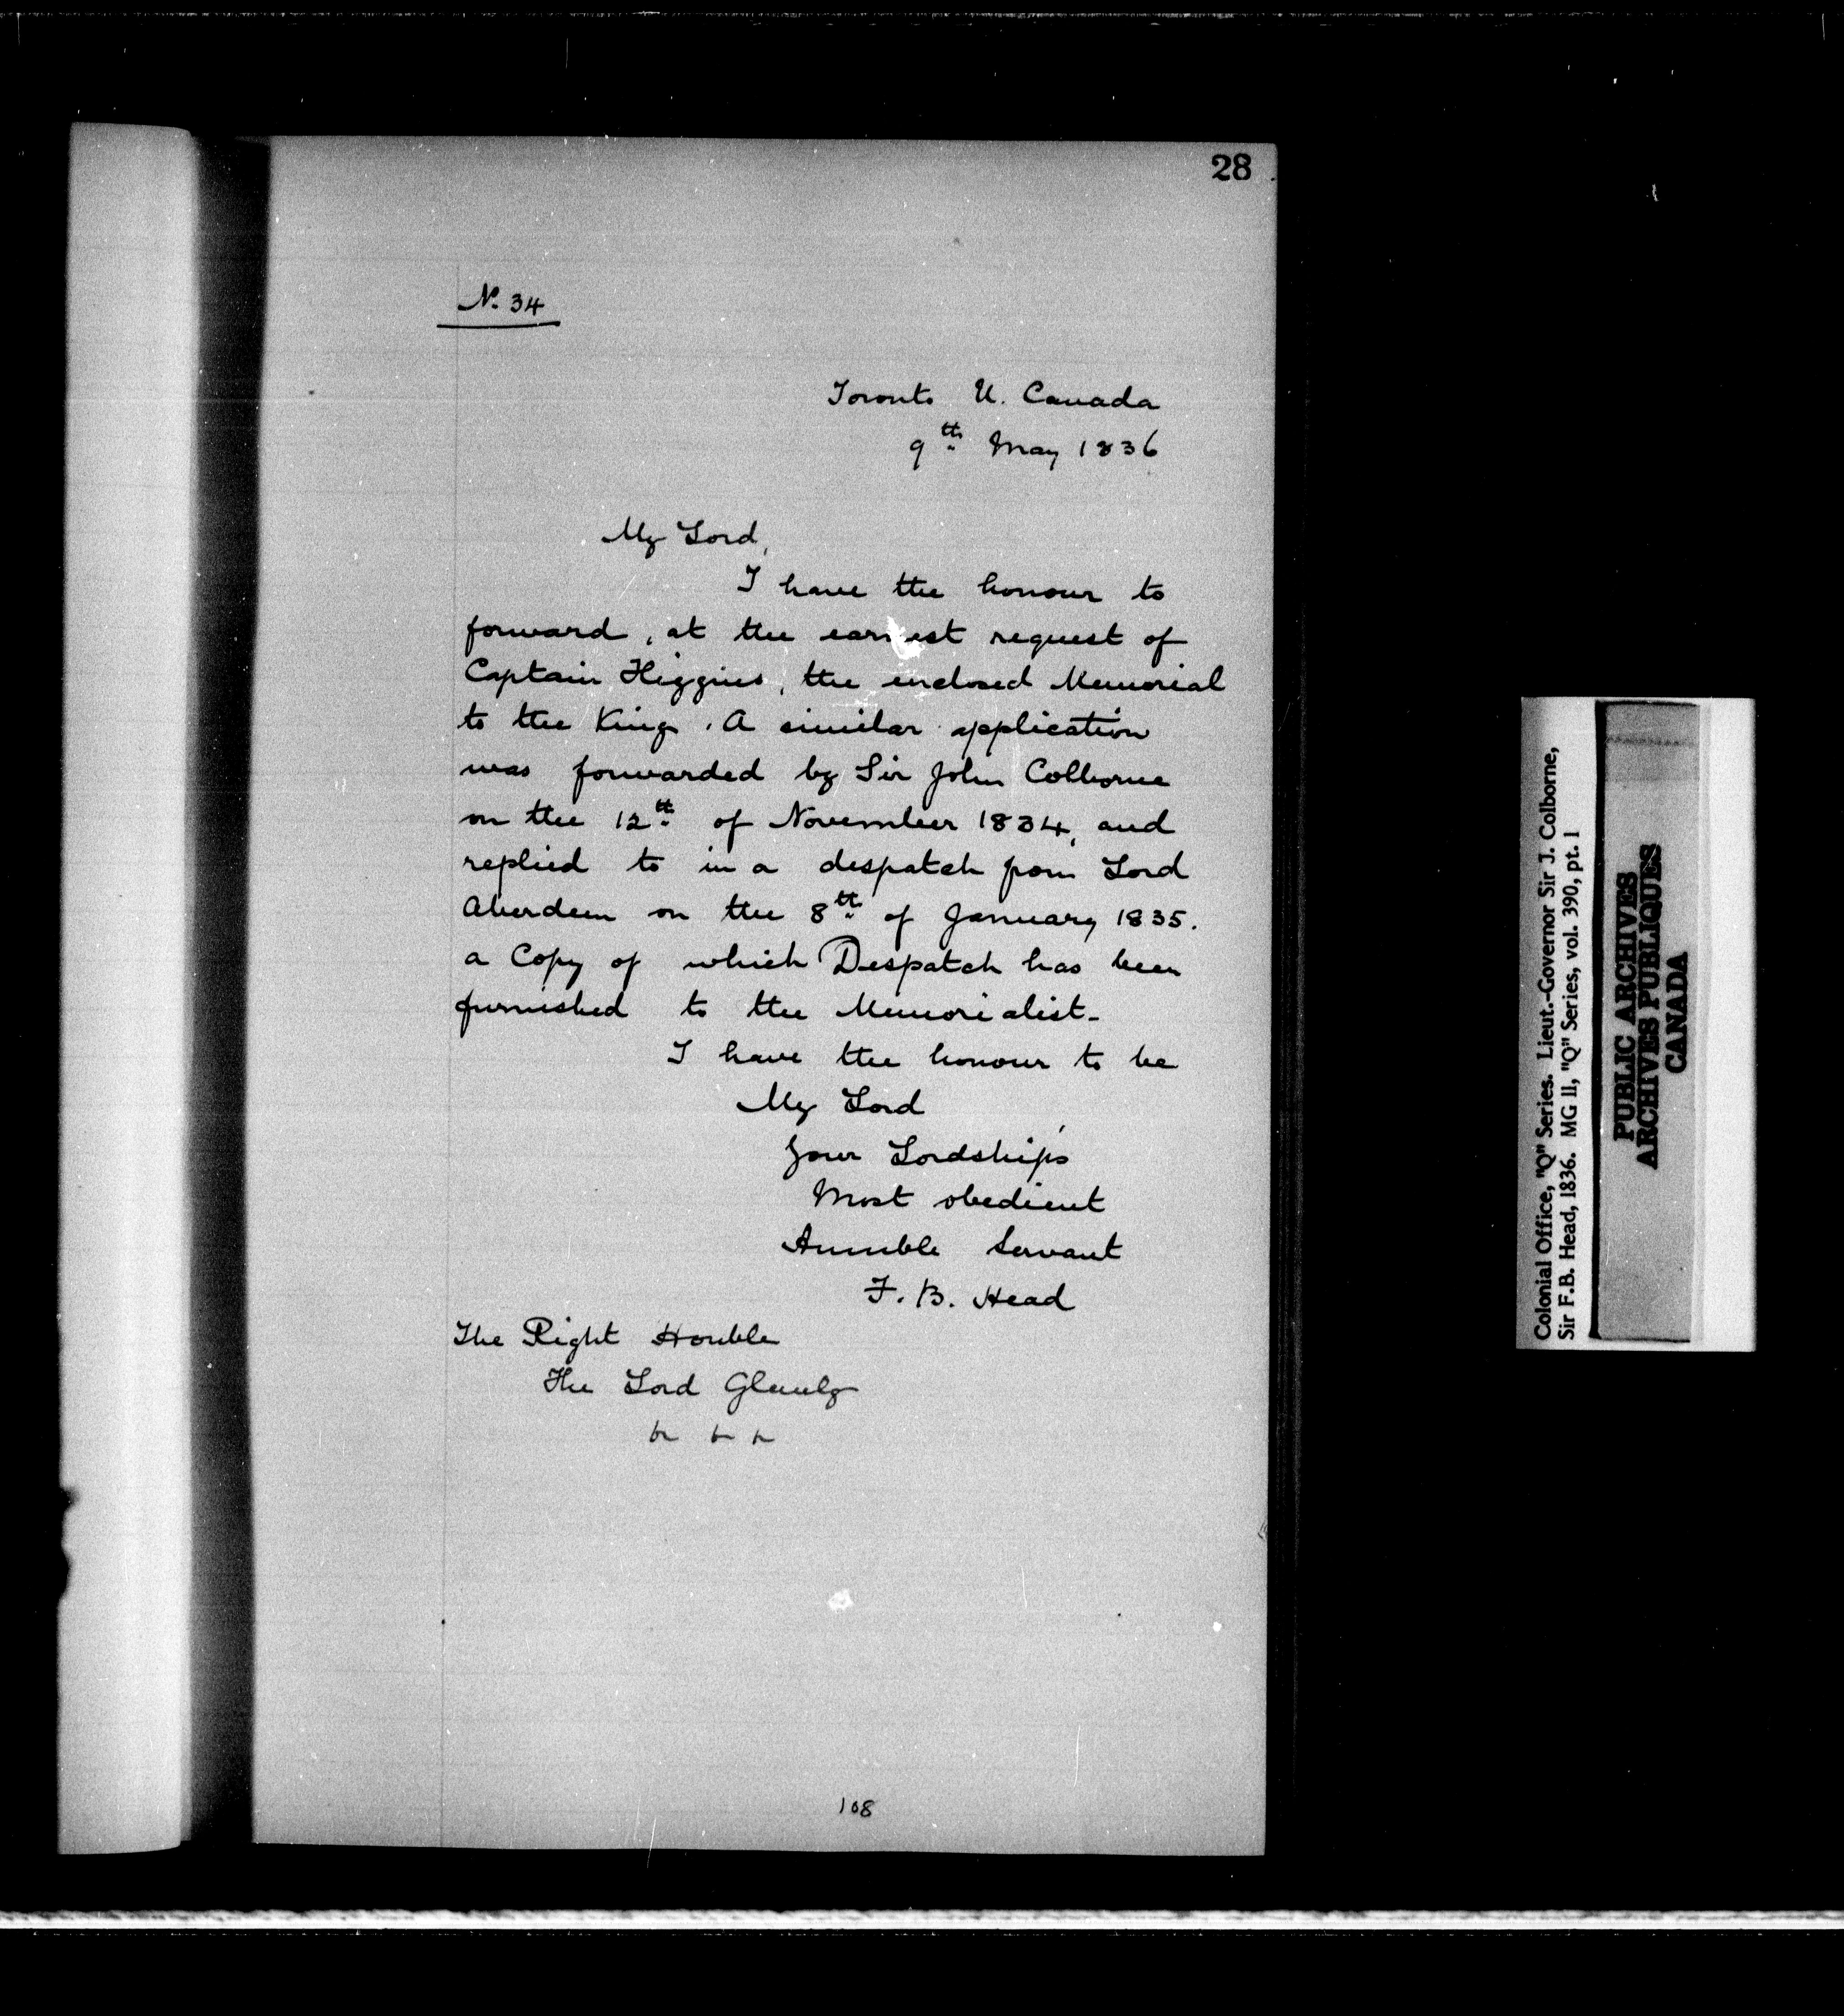 28
No. 34
Toronto U. Canada
9th May 1836
My Lord,
I have the honour to
forward, at the earnest request of
Captain Higgins, the enclosed Memorial
to the King. A similar application
was forwarded by Sir John Colborne
on the 12th of November 1834, and
replied to in a despatch from Lord
Aberdeen on the 8th of January 1835.
a Copy of which Despatch has been
furnished to the Memorialist-
I have the honour to be
My Lord
Your Lordship's
Most obedient
Humble Servant
F. B. Head
The Right Honble
The Lord Glenelg
108
Colonial Office, "Q" Series. Lieut.-Governor Sir J. Colborne,
Sir F.B. Head, 1836. MG 11, "Q" Series, vol. 390, pt. 1
PUBLIC ARCHIVES
ARCHIVES PUBLIQUES
CANADA